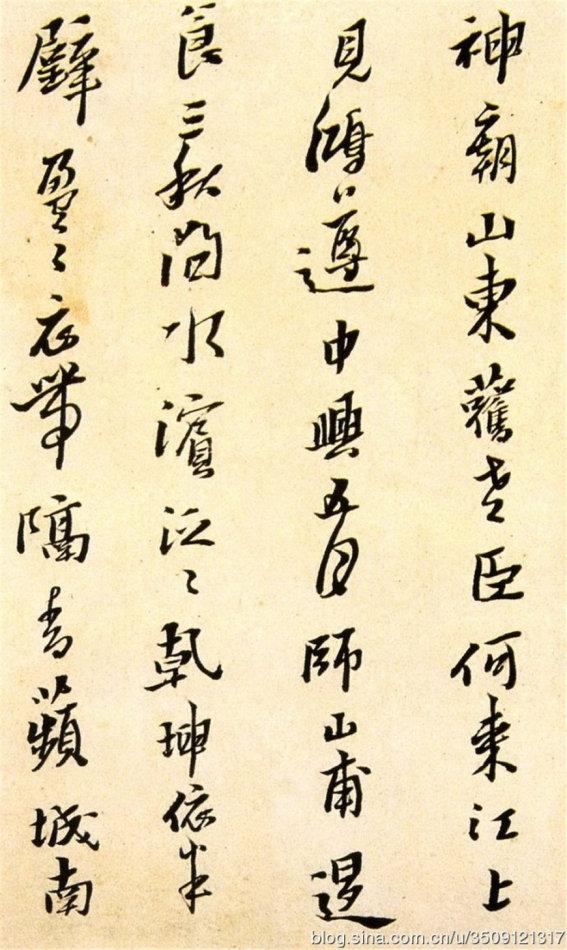 神廟山東舊老臣何來江上
見鴻遵中興五月師山甫退
食三秋問水濱泛〻乾坤依半
壁盈〻衣帶隔青蘋城南
blog.sina.com.cn/u/3509121317